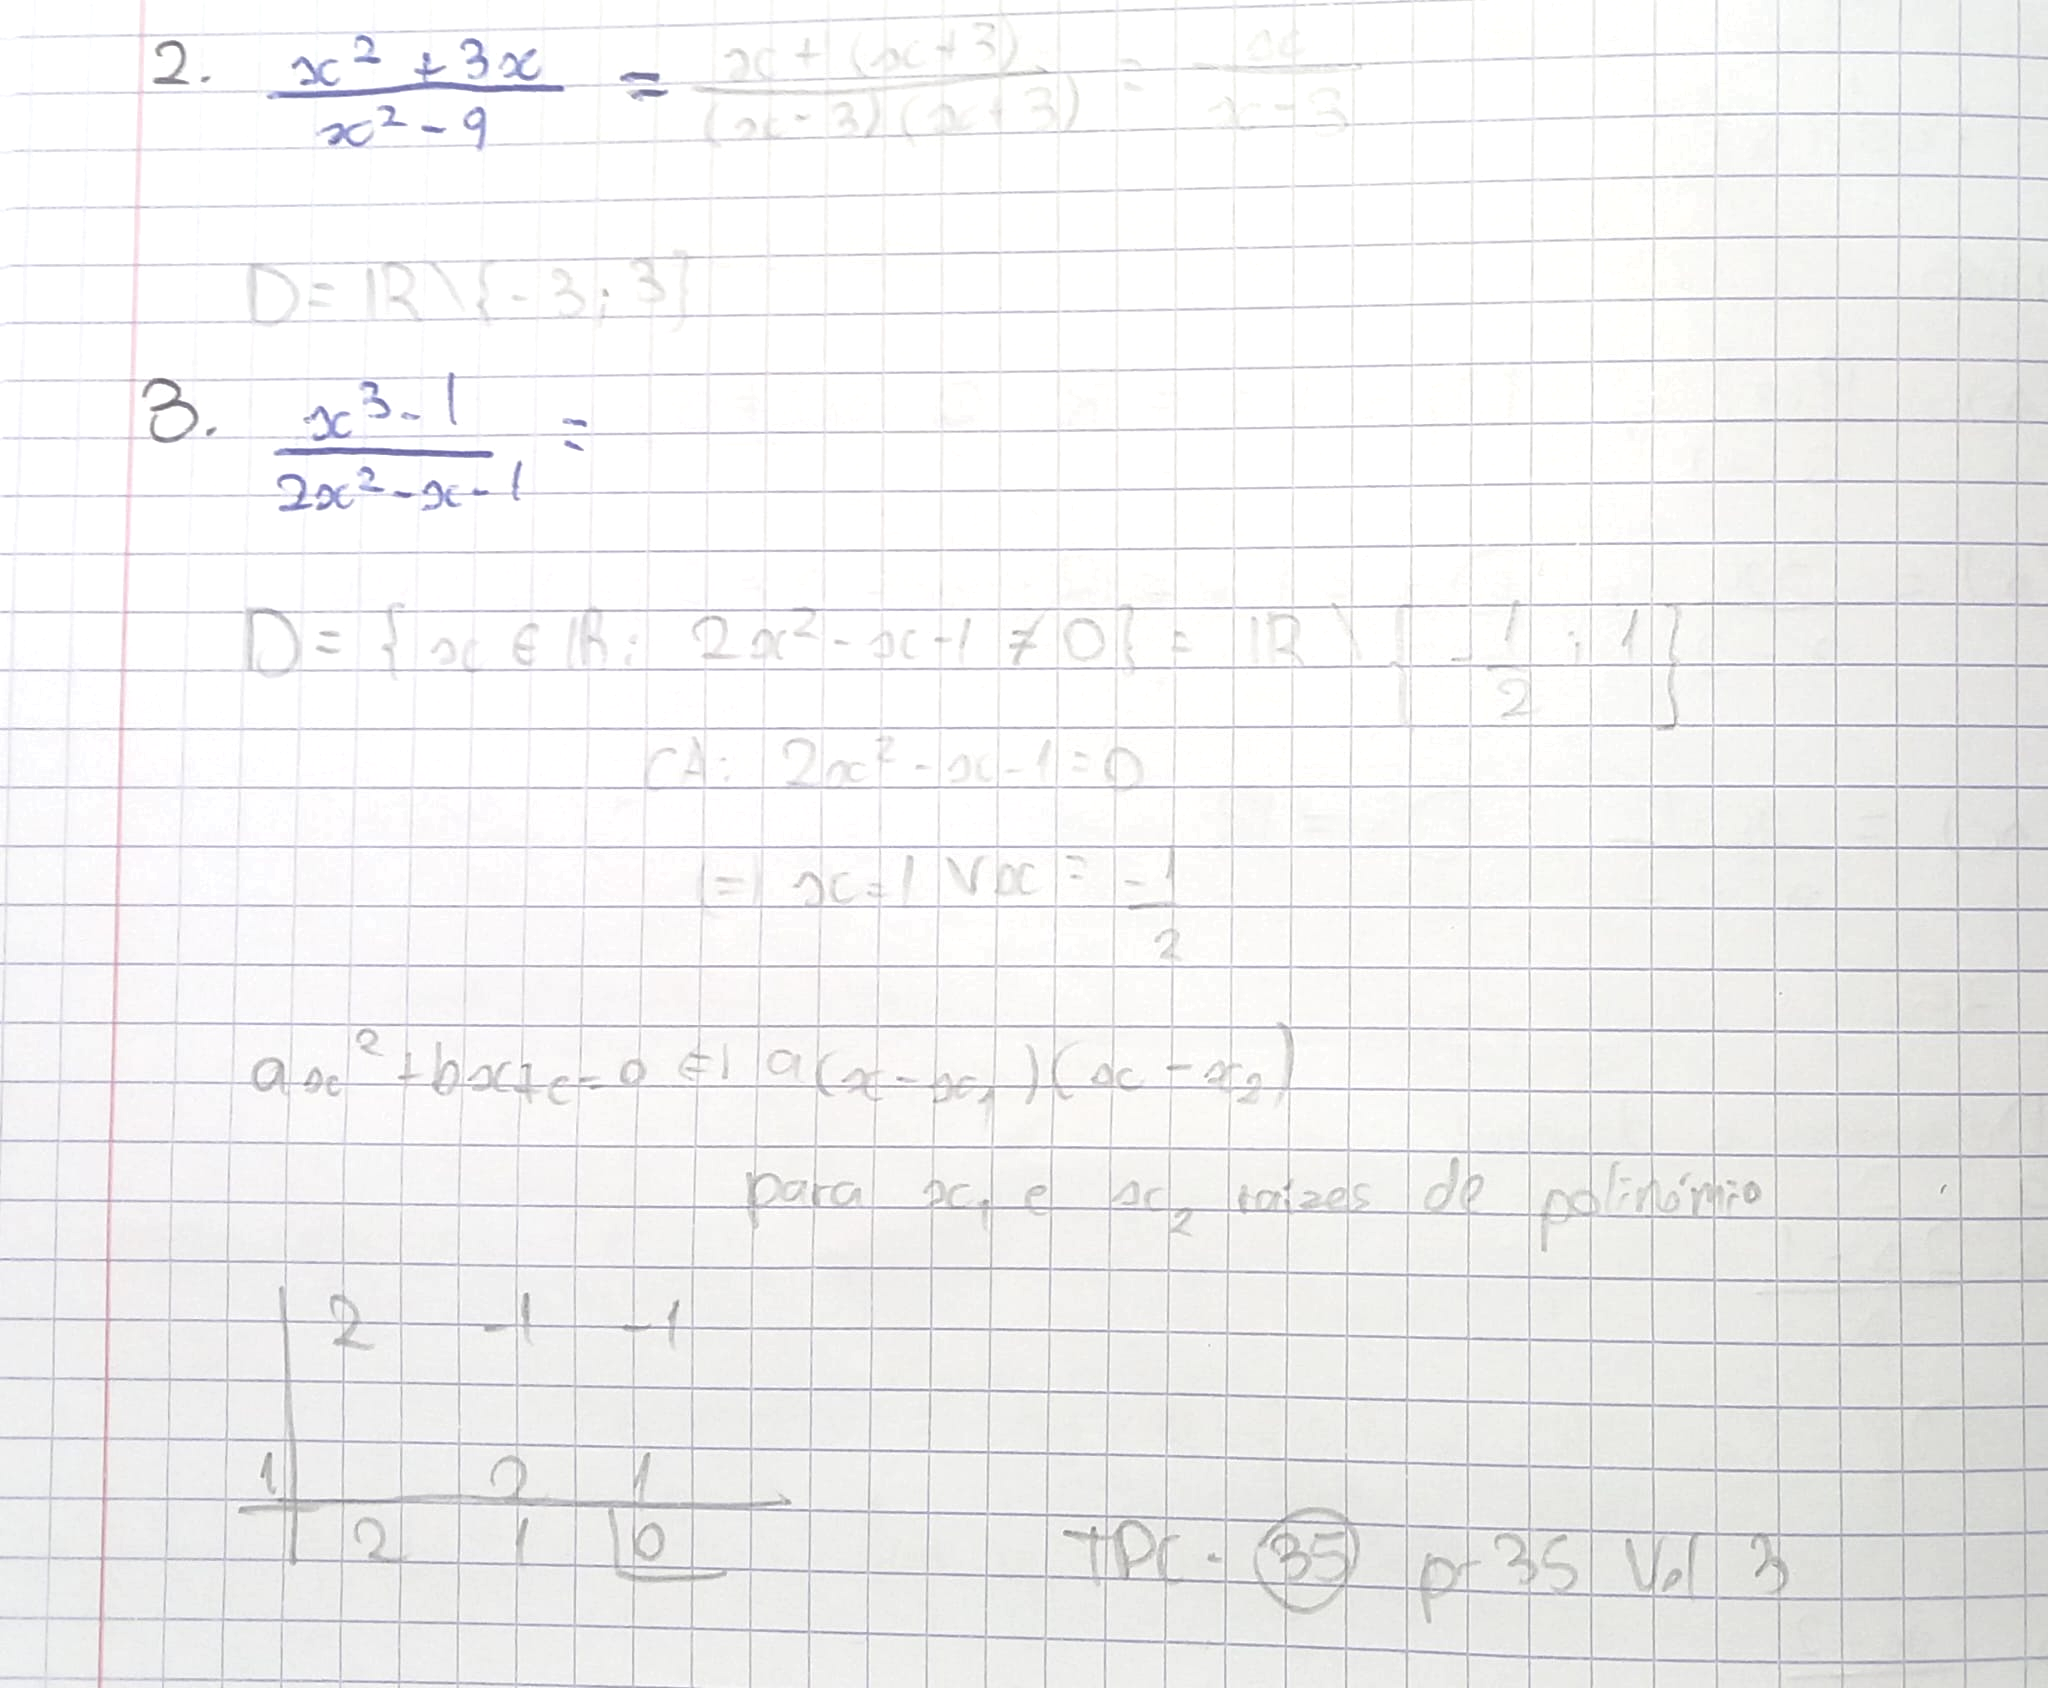 2. x² + 3x / x² - 9 = x + (x+3) / (x-3)(x+3) = x / x-3
D = ℝ \ {-3; 3}
3. x³ - 1 / 2x² - x - 1 =
D = {x ∈ ℝ: 2x² - x - 1 ≠ 0} = ℝ \ {-1/2; 1}
CA: 2x² - x - 1 = 0
(=) x = 1 ∨ x = -1/2
ax² + bx + c = 0 (=) a(x - x₁)(x - x₂)
para x₁ e x₂ raízes de polinómio
2 -1 -1
1 2 1
2 1 0
TPC - 35 p 35 Vol 3